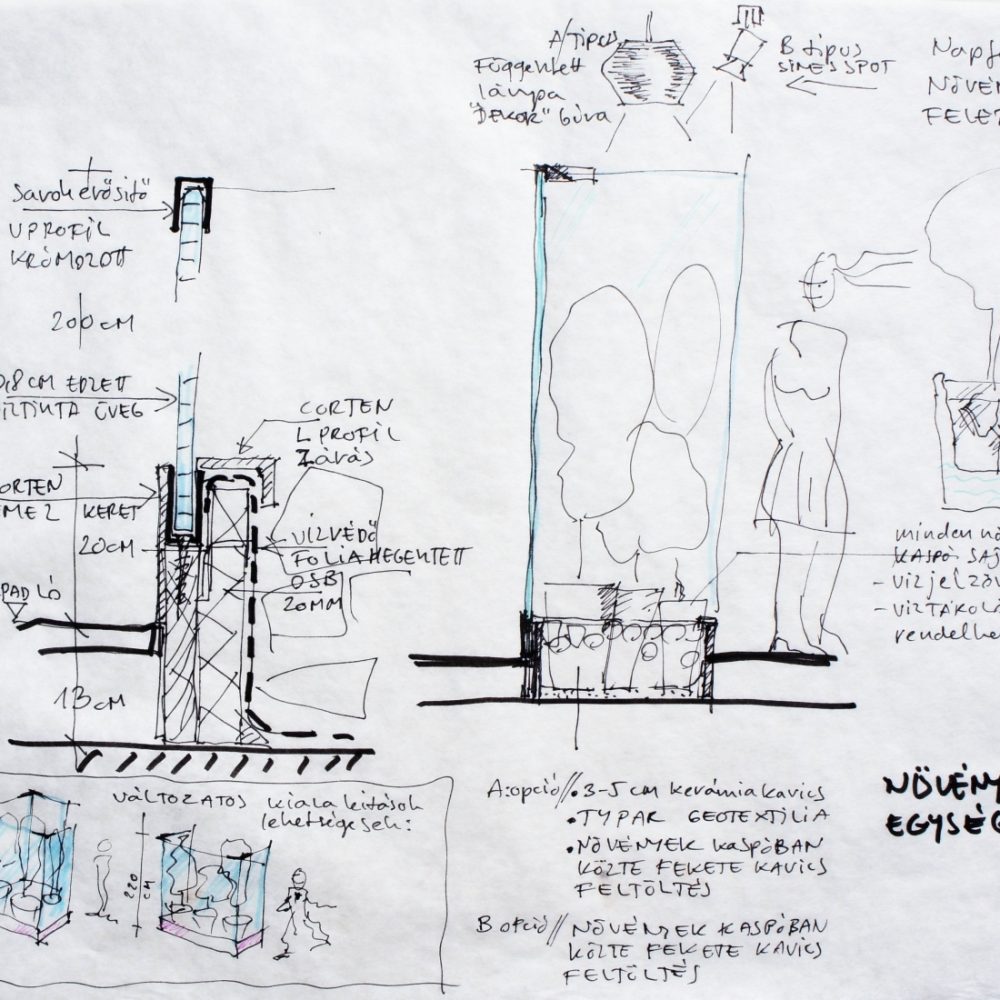 A/TIPUS
Függesztett
lámpa
"DEKOR" búra
B tipus
SINES SPOT
NÖVÉN
FELET
Sarokerősitő
U PROFIL
KRÓMOZOTT
200 cm
0,8 cm EDZETT
VIZTISZTA ÜVEG
CORTEN
L PROFIL
Zárás
CORTEN
LEMEZ KERET
20 cm
VIZVÉDŐ
FOLIA HEGESZTETT
OSB
20 MM
PADLÓ
13 cm
minden nö
KASPÓ SAJ
- VIZJELZŐV
- VIZTÁROLÓ
rendelhe
VÁLTOZATOS kialakitások
lehetségesek:
220
cm
A:opció//• 3-5 cm kerámia kavics
• TYPAR GEOTEXTILIA
• NÖVÉNYEK KASPÓBAN
KÖZTE FEKETE KAVICS
FELTÖLTÉS
B opció// NÖVÉNYEK KASPÓBAN
KÖZTE FEKETE KAVICS
FELTÖLTÉS
NÖVÉNY
EGYSÉG